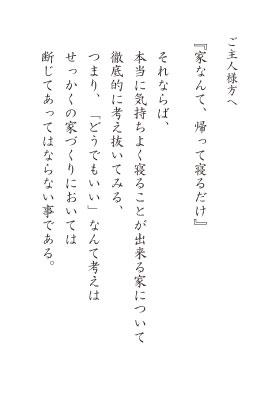 ご主人様方へ
『家なんて、帰って寝るだけ』
それならば、
本当に気持ちよく寝ることが出来る家について
徹底的に考え抜いてみる、
つまり、「どうでもいい」なんて考えは
せっかくの家づくりにおいては
断じてあってはならない事である。